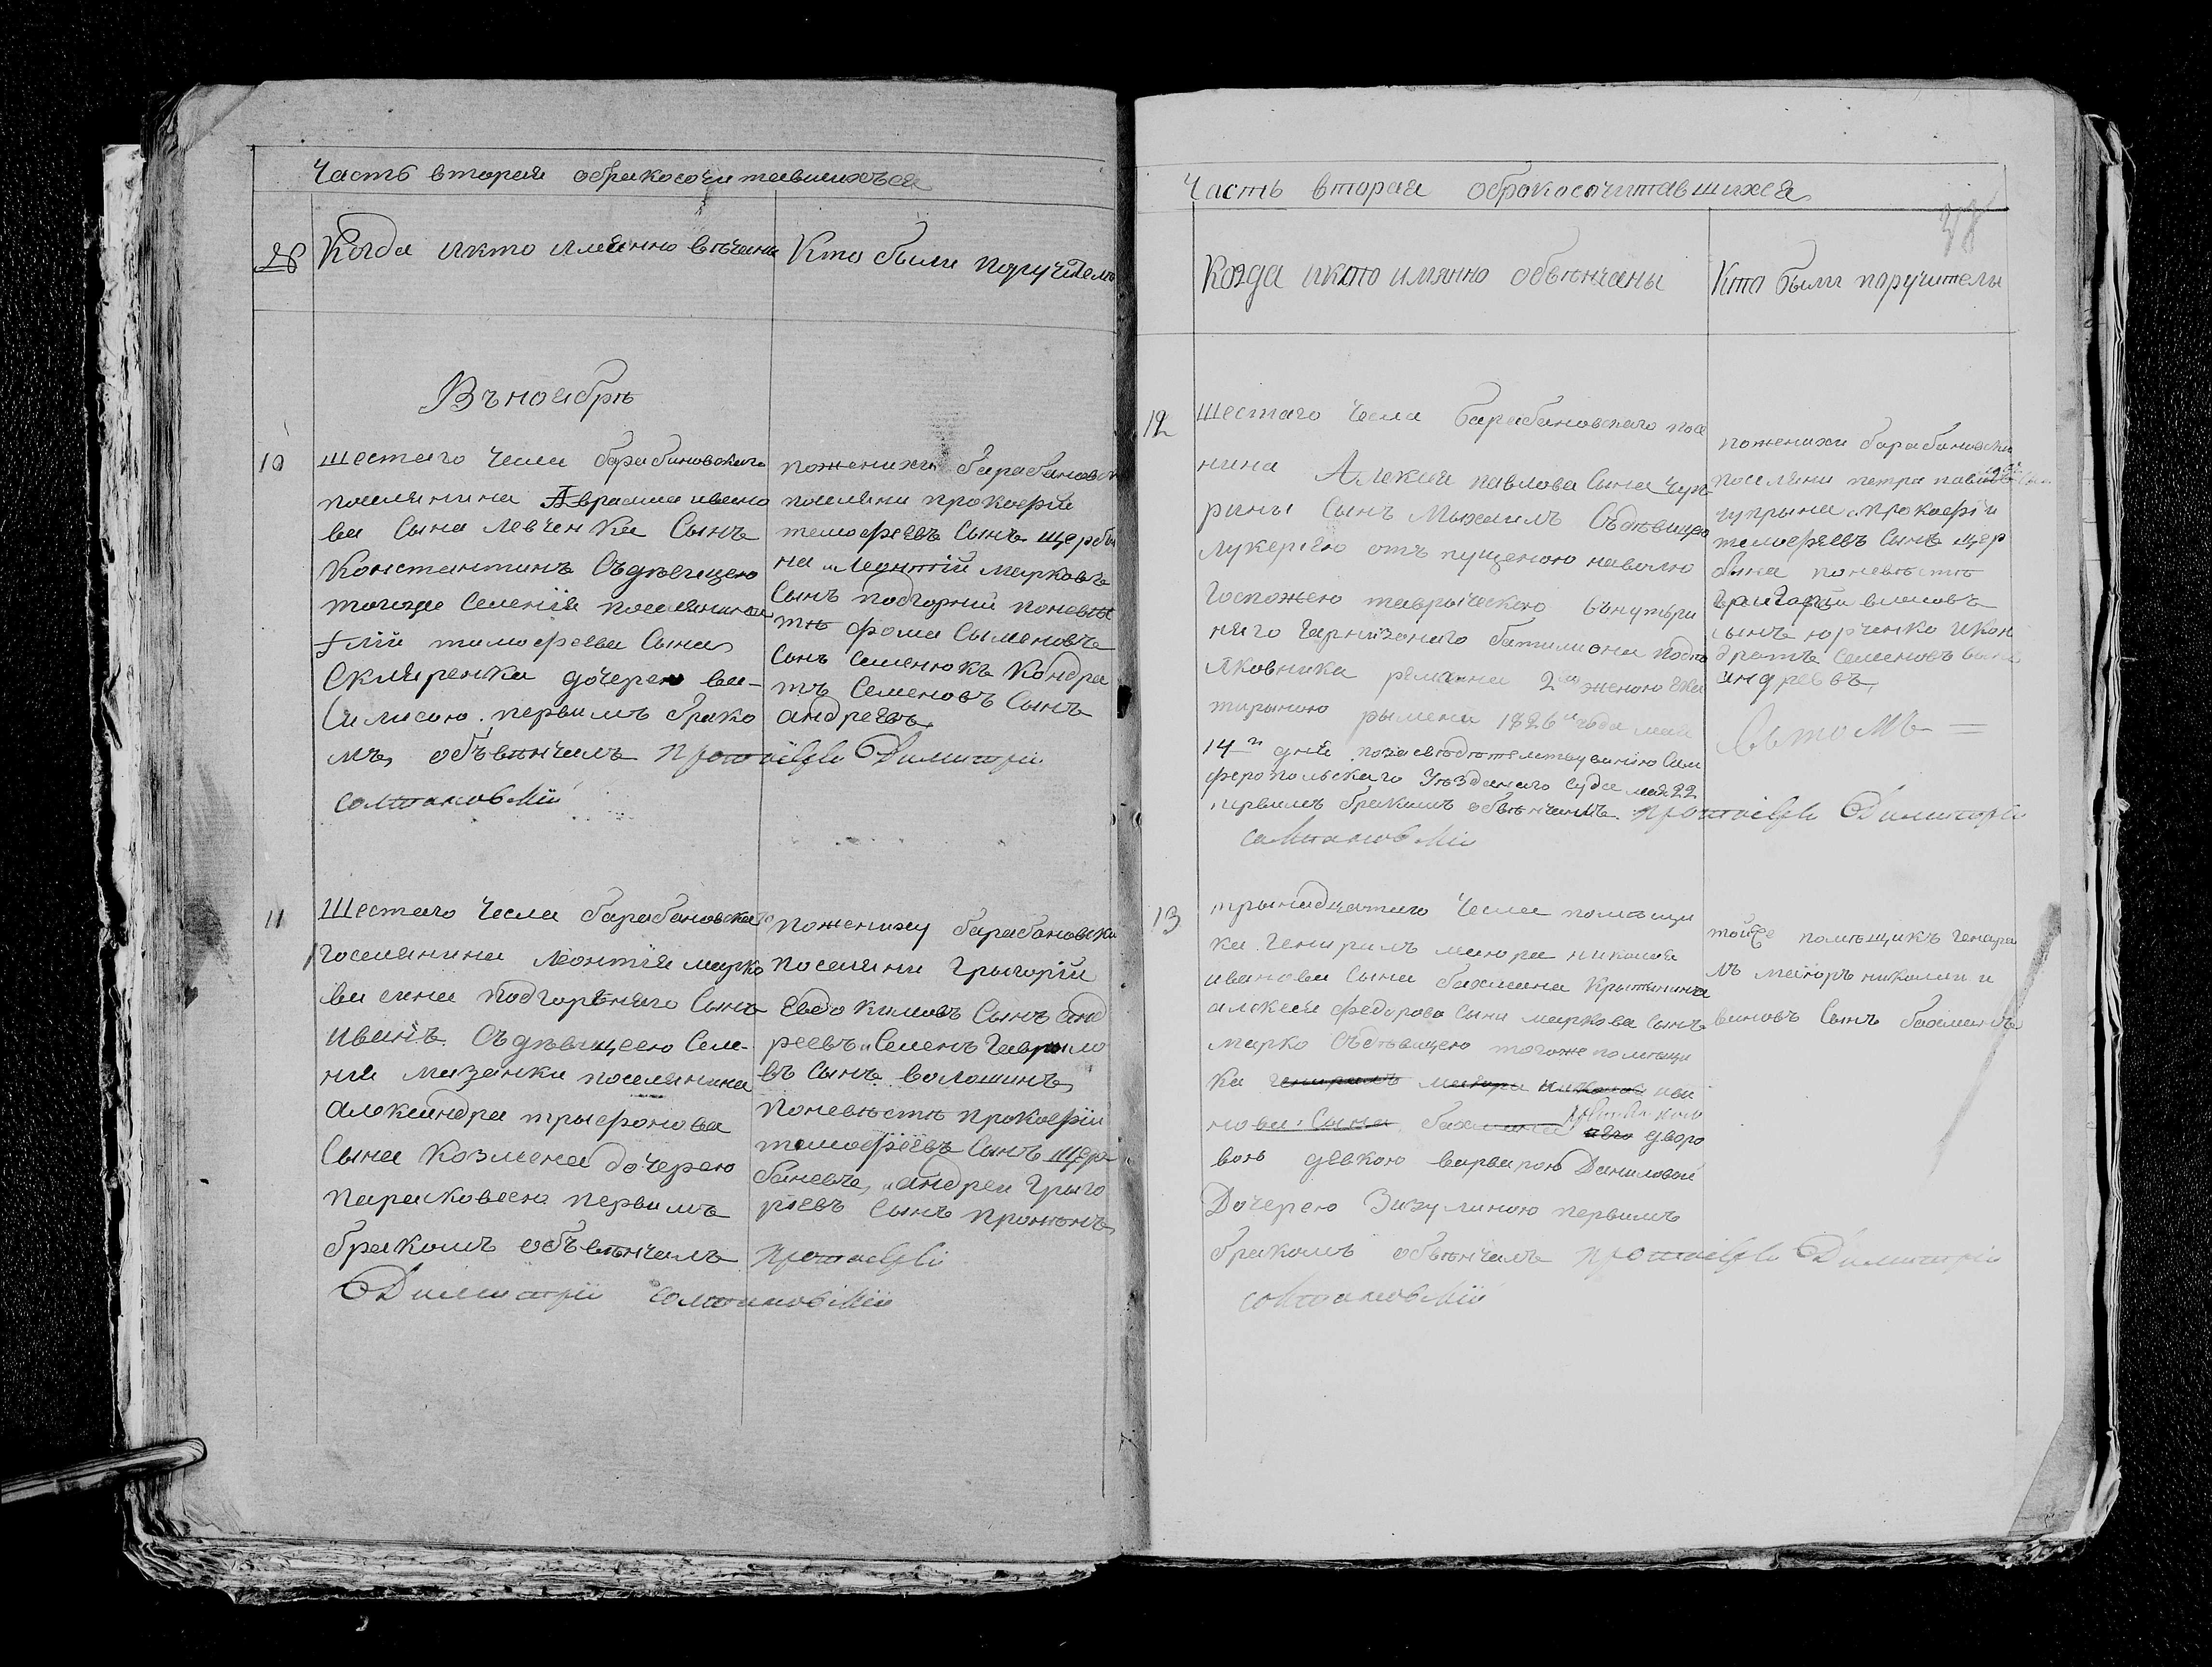 Часть вторая обракосочитавшихъся
№ Когда икто имянно венчани
Кто были поручители
Въ ноябрѣ
10
шестаго числа барабановскаго
поселянина Авраама ивано
ва сына левченка сынъ
Константинъ Съдѣвицею
тогоже селения поселянина
тимофеева сина
Скляренка дочерею ва-
силисою первимъ брако
мъ обьвѣнчалъ протоіерей Димитрій
поженихи барабановск
поселяни прокофій
тимофѣевъ Сынъ щерба
на и Леонтій марковъ
Сынъ подгорній поневѣс
тѣ фома Сименовъ
Сынъ Семенюкъ Кондра
тъ Семеновъ Сынъ
андреевъ
11
Шестаго числа барабановскаго
поселянина леонтія марко
ва сина подгорнаго Сынъ
иванъ Съдѣвицеею Селе-
ния мазанки поселянина
александра трыфонова
Сына Козмена дочерею
парасковеею первимъ
бракомъ объвѣнчалъ протоіерей
Димитрій
поженику барабановски
поселяни Грыгорій
Евдокимовъ Сынъ анд
реевъ и Семенъ Гаврыло
въ Сынъ волошинъ
поневѣстѣ прокофій
тимофѣевъ Сынъ щер
баневъ, и андреи Грыго
риевъ Сынъ
Часть вторая обракосочитавшихся
Когда икто имянно обвѣнчаны
Кто были поручители
12
шестаго числа барабановскаго посе
нина Алексия павлова Сына чуп
рины Сынъ Михаилъ Съдѣвицею
лукериею отъпущеною наволю
Госпожею таврыческаго вънутри
няго Гарнизонаго баталиона подпо
лковника 2ю женою Ека
тириною 1826 года мая
14го дня позасвѣдѣтелствуванию Сим
феропольскаго Уѣзднаго Суда мая 22
первимъ бракамъ обвѣнчанъ протоіерей Димитрій
поженихи барабановски
поселяни петра павловъ
чупрына и прокофій
тимофеевъ Сынъ щер
бина поневѣстѣ
Григорій власовъ
сынъ юрченко икон
дратъ Семеновъ Сынъ
андреевъ
13
трынадцатаго числа помѣщи
ка Гениралъ маиора николая
иванова Сына бахмина Крытянина
алексея федорова Сына маркова Сынъ
марко Съдѣвицею тогоже помѣщи
ка генералъ маиора николая ива
нова Сына бахмина его дворо
вою девкою варварою Даниловой
Дочерею Зизулиною первимъ
бракомъ обвѣнчалъ протоіерей Димитрій
тойже помѣщикъ генера
лъ маиоръ николаи и
вановъ Сынъ бахминъ